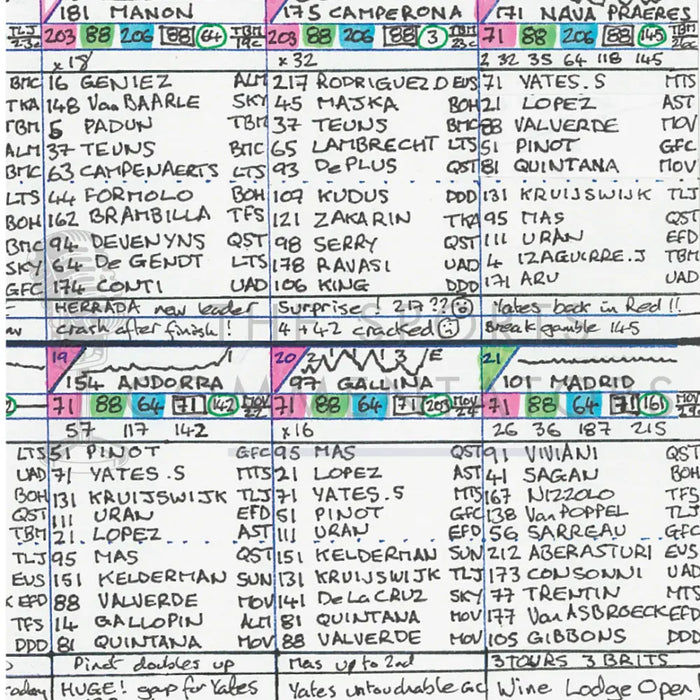 181 MANON
203 88 206 88 64 TBM 19c
x 18
16 GENIEZ ALM
148 Van BAARLE SKY
5 PADUN TBM
37 TEUNS BMC
63 CAMPENAERTS LTS
44 FORMOLO BOH
162 BRAMBILLA TFS
94 DEVENYNS QST
64 De GENDT LTS
174 CONTI UAD
HERRADA new leader
crash after finish!
175 CAMPERONA
203 88 206 88 3 TBM 23c
x 32
217 RODRIGUEZ.O EUS
45 MAJKA BOH
37 TEUNS BMC
65 LAMBRECHT LTS
93 De PLUS QST
109 KUDUS DDD
121 ZAKARIN TKA
98 SERRY QST
178 RAVASI UAD
106 KING DDD
Surprise! 217 ??
4 + 42 cracked
171 NAVA PRAERES
71 88 206 88 145 TBM
2 32 35 64 118 145
71 YATES.S MTS
21 LOPEZ AST
88 VALVERDE MOV
51 PINOT GFC
81 QUINTANA MOV
131 KRUIJSWIJK TLJ
95 MAS QST
111 URAN EFD
4 IZAGUIRRE.J TBM
171 ARU UAD
Yates back in Red !!
Break gamble 145
THE SPORTS
19
154 ANDORRA
71 88 64 71 142 MOV
57 117 142
51 PINOT GFC
71 YATES.S MTS
131 KRUIJSWIJK TLJ
111 URAN EFD
21 LOPEZ AST
95 MAS QST
151 KELDERMAN SUN
88 VALVERDE MOV
14 GALLOPIN ALM
81 QUINTANA MOV
Pinot doubles up
HUGE! gap for Yates
20 2 1 3 E
97 GALLINA
71 88 64 71 203 MOV
x 16
95 MAS QST
21 LOPEZ AST
71 YATES.S MTS
51 PINOT GFC
111 URAN EFD
151 KELDERMAN SUN
131 KRUIJSWIJK TLJ
141 De La CRUZ SKY
81 QUINTANA MOV
88 VALVERDE MOV
Mas up to 2nd
Yates untouchable
21
101 MADRID
71 88 64 71 161 MOV
26 36 187 215
91 VIVIANI QST
41 SAGAN BOH
167 NIZZOLO TFS
138 Van POPPEL TLJ
56 SARREAU GFC
212 ABERASTURI EUS
173 CONSONNI UAD
77 TRENTIN MTS
177 Van ASBROECK EFD
105 GIBBONS DDD
3 TOURS 3 BRITS
Wine Lodge Open